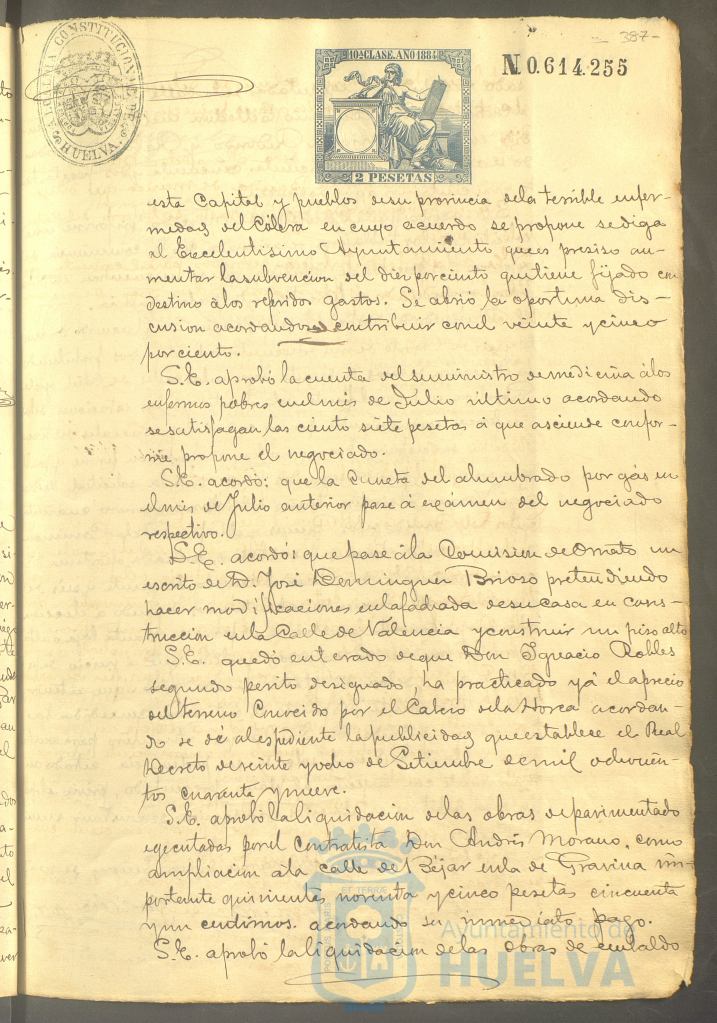 387-
ALCALDIA CONSTITUCIONAL DE HUELVA.
10ª CLASE. AÑO 1884
2 PESETAS
N. 0.614.255
esta Capital y pueblos de su provincia de la terrible enfer-
medad del Cólera en cuyo acuerdo se propone se diga
al Excelentisimo Ayuntamiento que es preciso au-
mentar la subvencion del diez por ciento que tiene fijado con
destino á los referidos gastos. Se abrió la oportuna dis-
cusion acordandose contribuir con el veinte y cinco
por ciento.
S.E. aprobó la cuenta del suministro de medicina á los
enfermos pobres en el mes de Julio ultimo acordando
se satisfagan las ciento siete pesetas á que asciende confor-
me propone el negociado.
S.E. acordó: que la cuneta del alumbrado por gas en
el mes de Julio anterior pase á exámen del negociado
respectivo.
S.E. acordó: que pase á la Comision de Ornato un
escrito de D. José Dominguez Brioso pretendiendo
hacer modificaciones en la fachada de su casa en cons-
truccion en la Calle de Valencia y construir un piso alto
S.E. quedó enterado de que Don Ignacio Robles
segundo perito designado, ha practicado yá el aprecio
del terreno Conocido por el Cabezo de la Horca acordan-
do se dé al espediente la publicidad que establece el Real
Decreto de veinte y ocho de Setiembre de mil ochocien-
tos cuarenta y nueve.
S.E. aprobó la liquidacion de las obras de pavimentado
egecutadas por el contratista Don Andrés Morano, como
ampliacion á la calle de Béjar en la de Gravina im-
portante quinientas noventa y cinco pesetas cincuenta
y un centimos. acordando su inmediato pago.
S.E. aprobó la liquidacion de las obras de embaldo
Ayuntamiento de
HUELVA